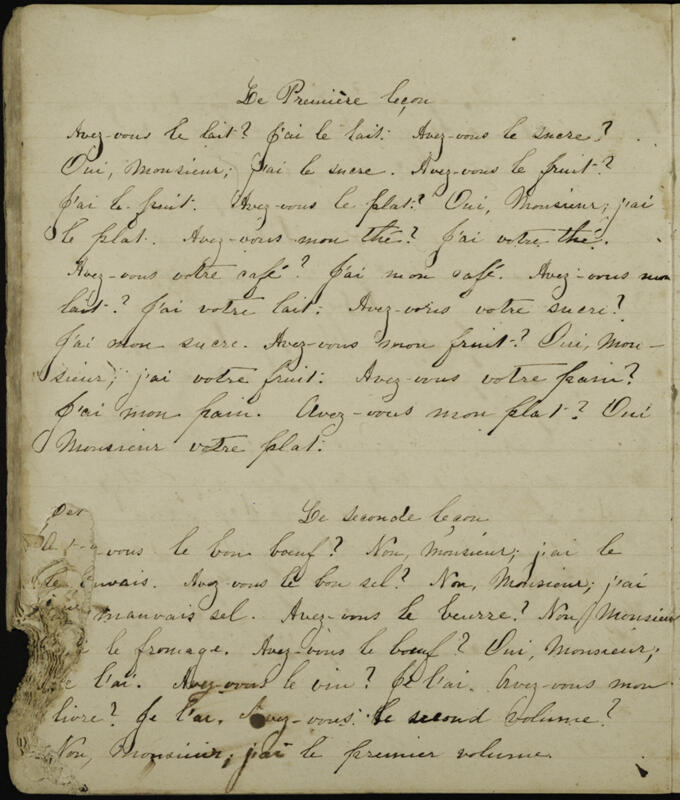 Le Première leçon
Avez-vous le lait? J'ai le lait. Avez-vous le sucre?
Oui, Monsieur; j'ai le sucre. Avez-vous le fruit?
J'ai le fruit. Avez-vous le plat? Oui, Monsieur; j'ai
le plat. Avez-vous mon thé? J'ai votre thé.
Avez-vous votre café? J'ai mon café. Avez-vous mon
lait? J'ai votre lait. Avez-vous votre sucre?
J'ai mon sucre. Avez-vous mon fruit? Oui, Mon-
sieur; j'ai votre fruit. Avez-vous votre pain?
J'ai mon pain. Avez-vous mon plat? Oui
Monsieur votre plat.
Le seconde leçon
-vous le bon bœuf? Non, Monsieur; j'ai le
Avez-vous le bon sel? Non, Monsieur; j'ai
mauvais sel. Avez-vous le beurre? Non Monsieur
le fromage. Avez-vous le bœuf? Oui, Monsieur;
l'ai. Avez-vous le vin? Je l'ai. Avez-vous mon
livre? Je l'ai. Avez-vous le second volume?
Non, Monsieur, j'ai le premier volume.